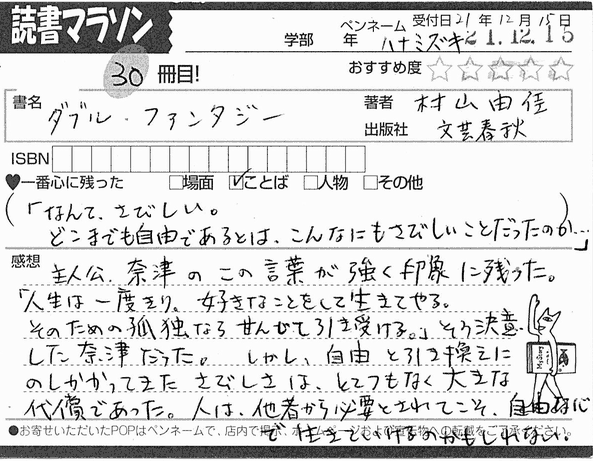 読書マラソン
学部 年 ペンネーム ハナミズキ 受付日 21年12月15日
21.12.15
30 冊目!
おすすめ度 ☆☆☆☆☆
書名 ダブル・ファンタジー
著者 村山由佳
出版社 文芸春秋
ISBN
♥一番心に残った □場面 ☑ことば □人物 □その他
(「なんて、さびしい。
どこまでも自由であるとは、こんなにもさびしいことだったのか…」)
感想
主人公、奈津のこの言葉が強く印象に残った。
「人生は一度きり。好きなことをして生きてやる。
そのための孤独なら ぜんぶ引き受ける。」そう決意
した奈津だった。しかし、自由と引き換えに
のしかかってきた さびしさは、とてつもなく大きな
代償であった。人は、他者から必要とされてこそ、自由な心
で生きていけるのかもしれない。
●お寄せいただいたPOPはペンネームで、店内で掲示、ホームページおよび宣伝物への転載をご了承ください。